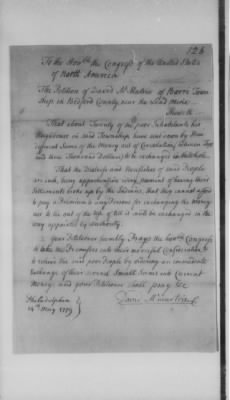 126
To the Hon.ble the Congress of the United States
of North America
The Petition of David
Township in Bedford County, near the Lead Mine
Sheweth
That about Twenty of the poor Inhabitants his
Neighbours in said Township have laid upon by
Sums of the Money out of Circulation between Two
and three Thousand Dollars to be exchanged
That the Distress and of said People
are such, being apprehensive every moment of having their
Settlements broke up by the Indians, that they cannot afford
to pay a Premium to any Persons for exchanging the Money
nor to lie out of the use of till it will be exchanged in the
way appointed by Authority.
Your Petitioner humbly Prays the hon.ble Congress
to take the Premises into their merciful Consideration &
to relieve the said poor People by ordering an immediate
Exchange of their several Small Sums into Current
Money. and your Petitioner shall pray &c
Philadelphia
14th May 1779
David